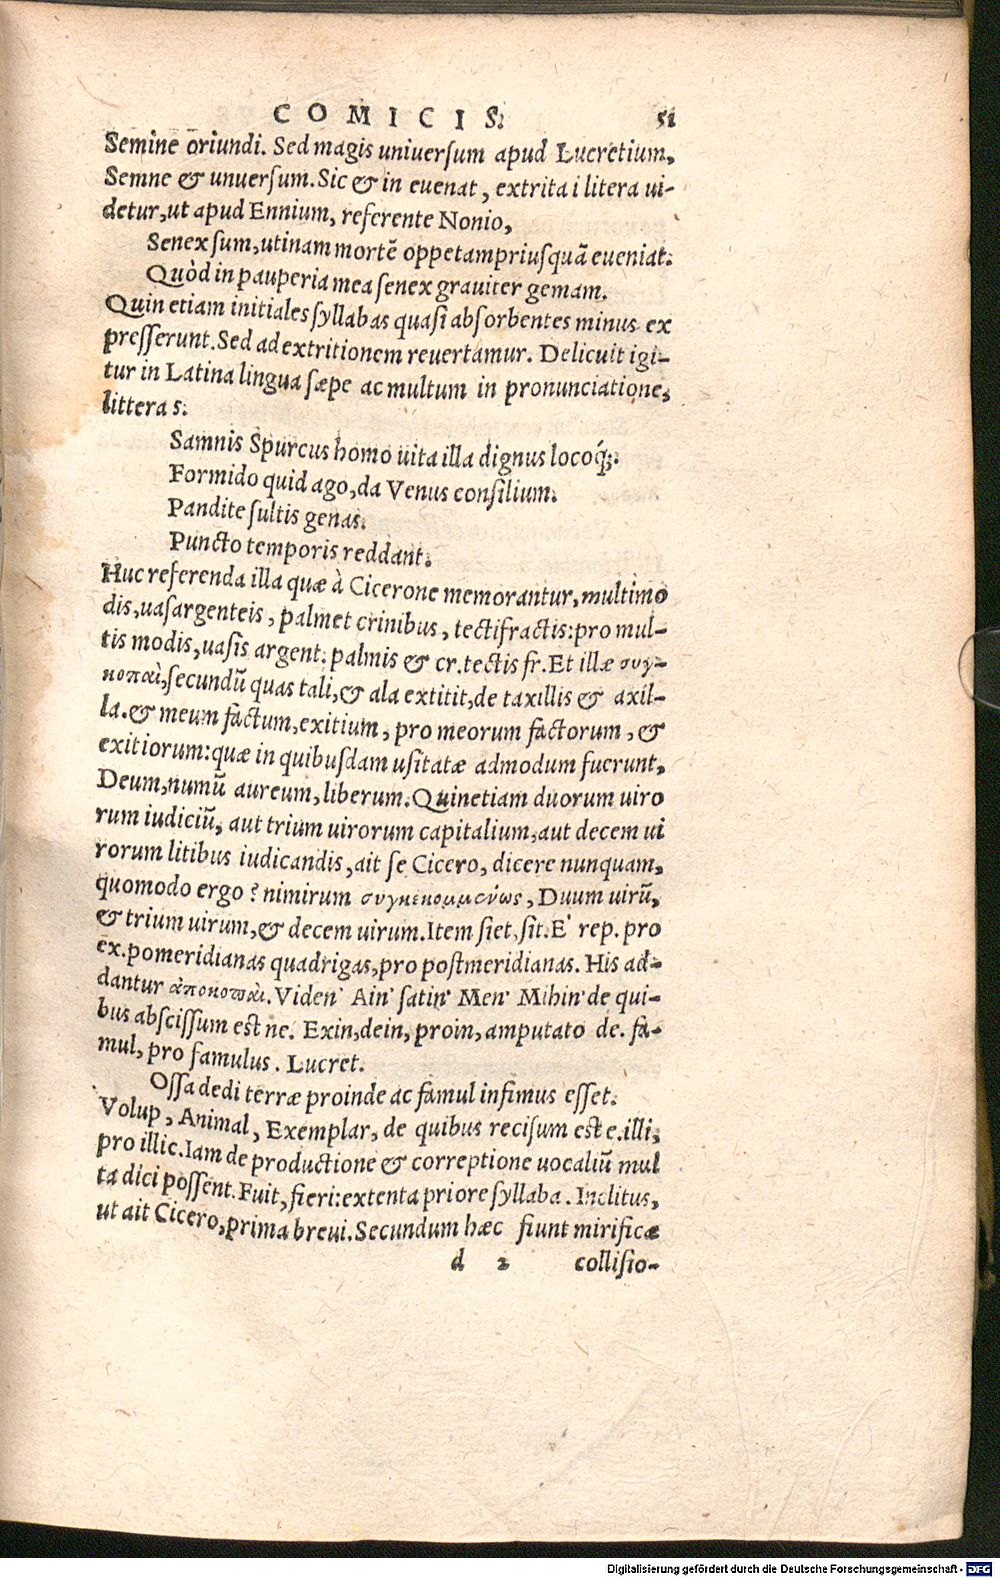 COMICIS. 51
Semine oriundi. Sed magis universum apud Lucretium,
Semne & unversum. Sic & in evenat, extrita i litera ui-
detur, ut apud Ennium, referente Nonio,
Senex sum, utinam mortē oppetam priusquā eveniat.
Quòd in pauperia mea senex graviter gemam.
Quin etiam initiales syllabas quasi absorbentes minus ex
presserunt. Sed ad extritionem revertamur. Delicuit igi-
tur in Latina lingua sæpe ac multum in pronunciatione,
littera s.
Samnis Spurcus homo uita illa dignus locoq́;.
Formido quid ago, da Venus consilium.
Pandite sultis genas.
Puncto temporis reddant.
Huc referenda illa quæ à Cicerone memorantur, multimo
dis, uasargenteis, palmet crinibus, tectifractis: pro mul-
tis modis, uasis argent. palmis & cr. tectis fr. Et illæ συγ-
κοπαὶ, secundū quas tali, & ala extitit, de taxillis & axil-
la. & meum factum, exitium, pro meorum factorum, &
exitiorum: quæ in quibusdam usitatæ admodum fuerunt,
Deum, numū aureum, liberum. Quinetiam duorum uiro
rum iudiciū, aut trium uirorum capitalium, aut decem ui
rorum litibus iudicandis, ait se Cicero, dicere nunquam,
quomodo ergo? nimirum συγκεκομμένως, Duum uirū,
& trium uirum, & decem uirum. Item siet, sit. E' rep. pro
ex. pomeridianas quadrigas, pro postmeridianas. His ad-
dantur ἀποκοπαὶ. Viden' Ain' satin' Men' Mihin' de qui-
bus abscissum est ne. Exin, dein, proin, amputato de. fa-
mul, pro famulus. Lucret.
Ossa dedi terræ proinde ac famul infimus esset.
Volup, Animal, Exemplar, de quibus recisum est e. illi,
pro illic. Iam de productione & correptione uocaliū mul
ta dici possent. Fuit, fieri: extenta priore syllaba. Inclitus,
ut ait Cicero, prima brevi. Secundum hæc fiunt mirificæ
d 2 collisio-
Digitalisierung gefördert durch die Deutsche Forschungsgemeinschaft - DFG